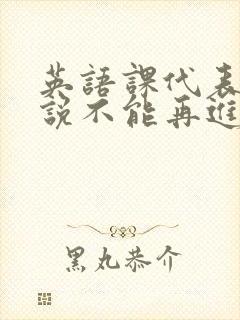 英語課代表
説不能再進
黑丸恭介